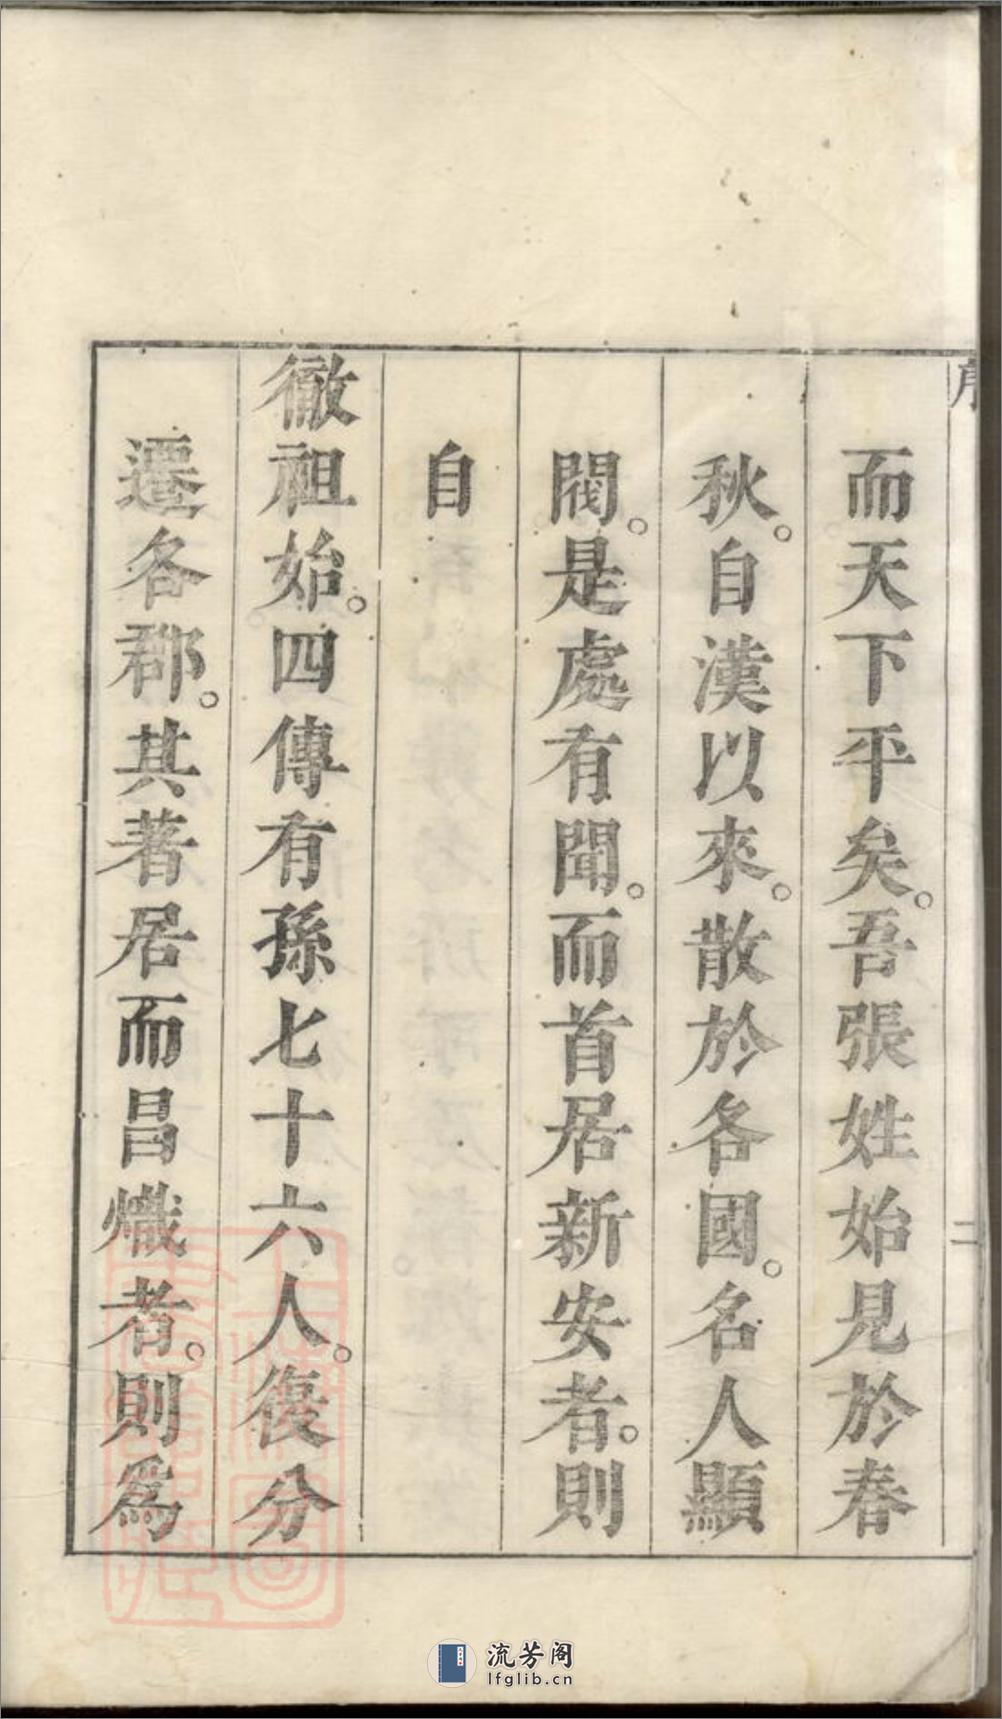 序
二
而天下平矣。吾張姓始見於春
秋。自漢以來。散於各國。名人顯
閥。是處有聞。而首居新安者。則
自
徹祖始。四傳有孫七十六人。復分
遷各郡。其著居而昌熾者。則爲
流芳阁
lfglib.cn